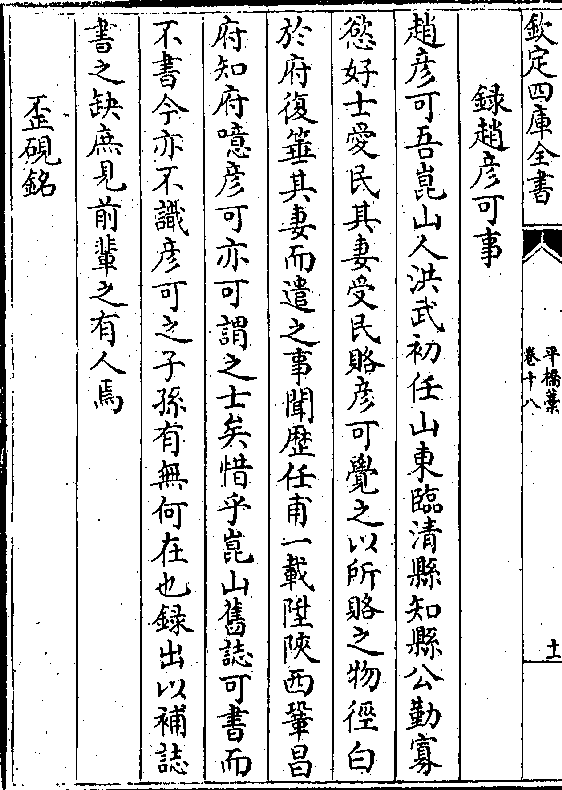 欽定四庫全書
平橋藁
卷十八
十一
録趙彦可事
趙彦可吾崑山人洪武初任山東臨清縣知縣公勤寡
慾好士愛民其妻受民賂彦可覺之以所賂之物徑白
於府復箠其妻而遣之事聞歴任甫一載陞陜西鞏昌
府知府噫彦可亦可謂之士矣惜乎崑山舊誌可書而
不書今亦不識彦可之子孫有無何在也録出以補誌
書之缺庶見前輩之有人焉
歪硯銘